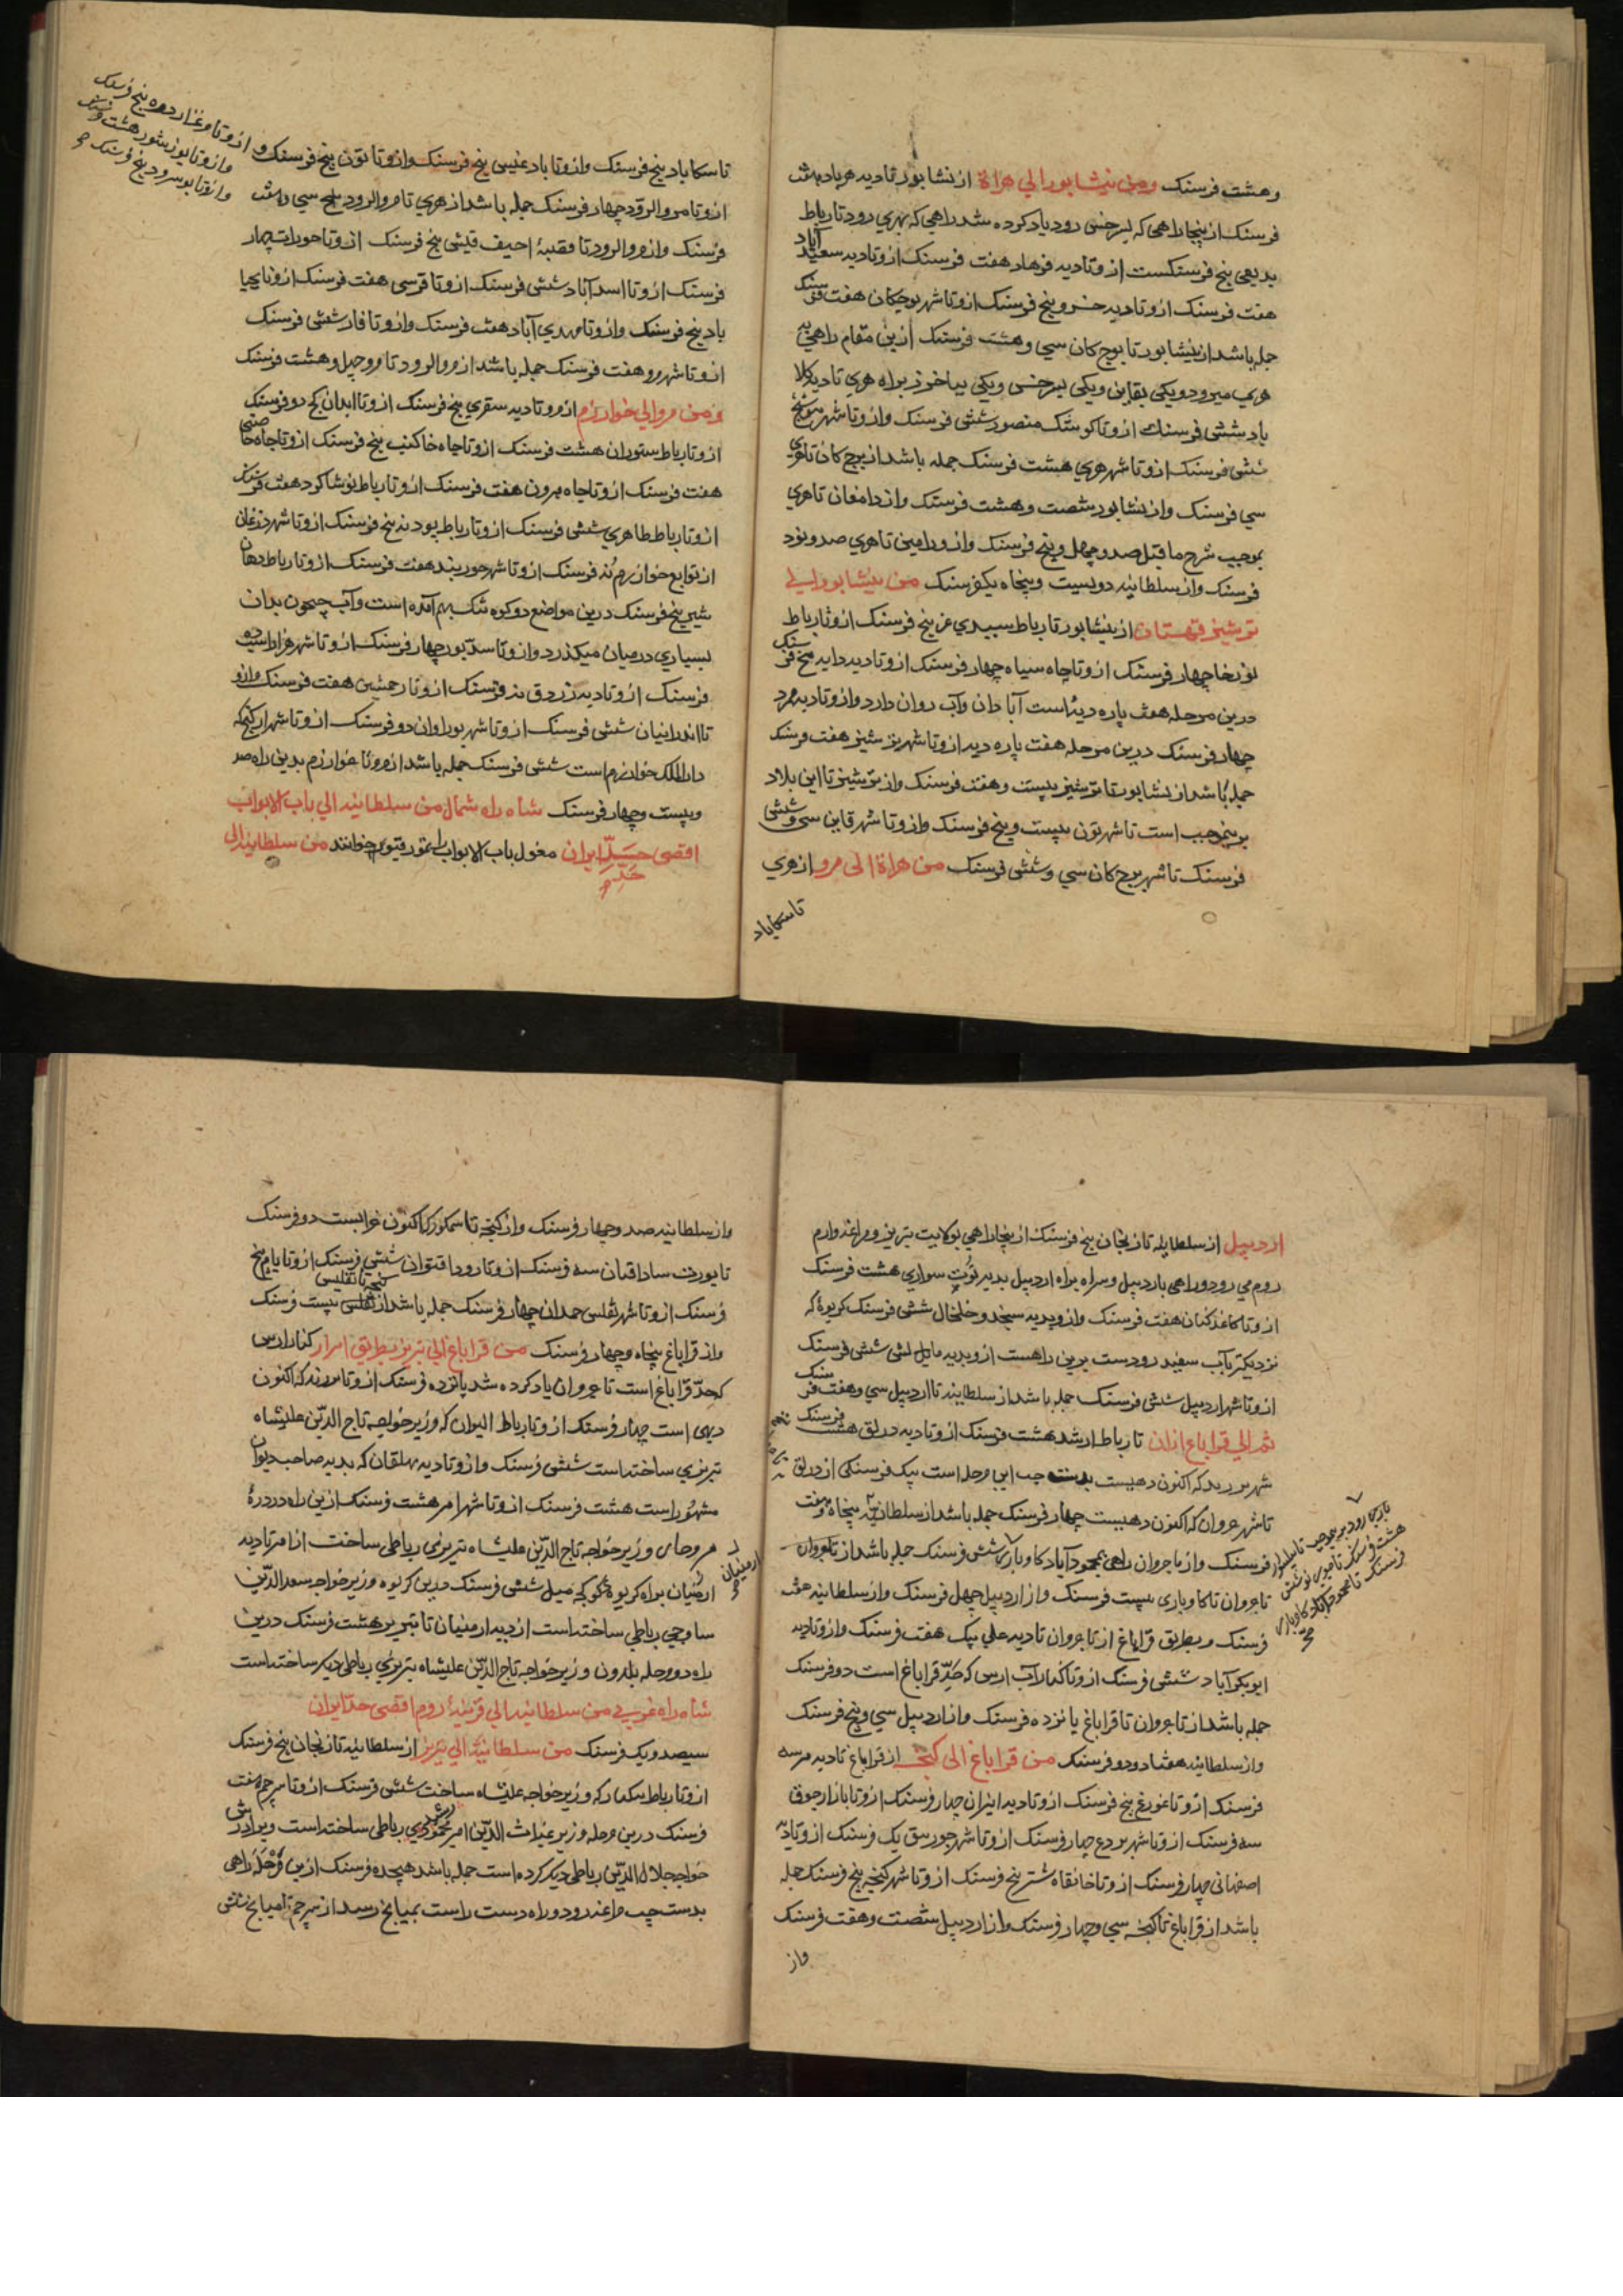 وهشت فرسنک ومن نیشابور الي هراة از نشابور تا دیه هرباد هشت
فرسنک از پنجا راهی که بسرخس رود یاد کرده شد راهی که بهری رود تا رباط
بدیعی پنج فرسنکست ازو تا دیه فرهاد هفت فرسنک ازو تا دیه سعید آباد
هفت فرسنک ازو تا دیه خسرو پنج فرسنک ازو تا شهر بوجکان هفت فرسنک
جمله باشد از نیشابور تا بوجکان سی وهشت فرسنک ازین مقام راهی به
هری میرود ویکی بقاین ویکی بسرخس ویکی بباخرز براه هری تا دیه کلا
باد شش فرسنک ازو تا کوشک منصور شش فرسنک وازو تا شهر بوشنج
شش فرسنک ازو تا شهر هری هشت فرسنک جمله باشد از بوجکان تا هری
سی فرسنک واز نشابور شصت وهشت فرسنک واز دامغان تا هری
بموجب شرح ماقبل صد وچهل وپنج فرسنک واز ورامین تا هری صد ونود
فرسنک واز سلطانیه دویست وپنجاه یکفرسنک من نیشابور الي
ترشیز قهستان از نیشابور تا رباط سبیدی عز پنج فرسنک ازو تا رباط
نورخا چهار فرسنک ازو تا چاه سیاه چهار فرسنک ازو تا دیه دایه پنج فرسنک
درین مرحله هفت پاره دیه است آبادان وآب روان دارد وازو تا دیه مرد
چهار فرسنک درین مرحله هفت پاره دیه ازو تا شهر ترشیز هفت فرسنک
جمله باشد از نشابور تا ترشیز بیست وهفت فرسنک واز ترشیز تا این بلاد
برینموجب است تا شهر تون بیست وپنج فرسنک وازو تا شهر قاین سی وشش
فرسنک تا شهر بوجکان سی وشش فرسنک من هراة الی مرو از هری
تا سکاباد
تا سکاباد پنج فرسنک وازو تا باد غیس پنج فرسنک وازو تا بون پنج فرسنک و
ازو تا مرغزار دره پنج فرسنک
وازو تا بغشور هشت فرسنک
وازو تا بوسرود پنج فرسنک
ازو تا مرو الرود چهار فرسنک جمله باشد از هری تا مرو الرود سی وهشت
فرسنک وازو مرو الرود تا قصبهٔ احنف قیس پنج فرسنک ازو تا حوراب چهار
فرسنک ازو تا اسدآباد شش فرسنک ازو تا قرسی هفت فرسنک ازو تا یحیا
باد پنج فرسنک وازو تا مهدی آباد هفت فرسنک وازو تا فاز شش فرسنک
ازو تا شهر مرو هفت فرسنک جمله باشد از مرو الرود تا مرو چهل وهشت فرسنک
ومن مرو الی خوارزم از مرو تا دیه سقری پنج فرسنک ازو تا ابدان کنج دو فرسنک
ازو تا رباط ستوران هشت فرسنک ازو تا چاه خاک پنج فرسنک ازو تا چاه صاحبی
هفت فرسنک ازو تا چاه هرون هفت فرسنک ازو تا رباط نوشاکرد هفت فرسنک
ازو تا رباط طاهری شش فرسنک ازو تا رباط بودنه پنج فرسنک ازو تا شهر درغان
از توابع خوارزم نه فرسنک ازو تا شهر حوربند هفت فرسنک ازو تا رباط دهان
شیر پنج فرسنک درین مواضع دو کوه تنک بهم آمده است وآب جیحون بدان
بسیاری در میان میکذرد وازو تا سدبور چهار فرسنک ازو تا شهر هزار اسب ده
فرسنک ازو تا دیه زردق نه فرسنک ازو تا رخمشین هفت فرسنک وازو
تا اندرانیان شش فرسنک ازو تا شهر بوراوان دو فرسنک ازو تا شهر ارکنج که
دار الملک خوارزم است شش فرسنک جمله باشد از مرو تا خوارزم بدین راه صد
وبیست وچهار فرسنک شاه راه شمال من سلطانیه الی باب الابواب
اقصی حد ایران مغول باب الابواب را تمور قپو خوانند من سلطانیه الی
اردبیل از سلطانیه تا زنجان پنج فرسنک از پنجا راهی بولایت تبریز ومراغه وارم
روم می رود وراهی باردبیل وسراه براه اردبیل بدیه توت سواری هشت فرسنک
ازو تا کاغذ کنان هفت فرسنک وازو بدیه سنجد وخلخال شش فرسنک کریوهٔ که
نزدیکتر بآب سفید رودست برین راهست ازو بدیه مایل لش شش فرسنک
ازو تا شهر اردبیل شش فرسنک جمله باشد از سلطانیه تا اردبیل سی وهفت فرسنک
ثم الی قراباغ اران تا رباط ارشد هشت فرسنک ازو تا دیه درلق هشت فرسنک
شهر برزند که اکنون دهیست بدست چپ این مرحله است بیک فرسنکی از درلق
تا شهر بجروان که اکنون دهیست چهار فرسنک جمله باشد از سلطانیه پنجاه وهفت
فرسنک واز باجروان راهی بمحمودآباد کاوباری شش فرسنک جمله باشد از باجروان
باجروان تا کاوباری بیست فرسنک واز اردبیل چهل فرسنک واز سلطانیه هفت
فرسنک وبطریق قراباغ از باجروان تا دیه علی بیک هفت فرسنک وازو تا دیه
ابوبکرآباد شش فرسنک ازو تا کنار آب ارس که حد قراباغ است دو فرسنک
جمله باشد از باجروان تا قراباغ پانزده فرسنک واز اردبیل سی وپنج فرسنک
واز سلطانیه هفتاد ودو فرسنک من قراباغ الی کنجه از قراباغ تا دیه هر سه
فرسنک ازو تا غورغ پنج فرسنک ازو تا دیه ایران چهار فرسنک ازو تا بازار جوق
سه فرسنک ازو تا شهر بردع چهار فرسنک ازو تا شهر جوزبق یک فرسنک ازو تا دیه
اصفهانی چهار فرسنک ازو تا خانقاه شتر پنج فرسنک ازو تا شهر کنجه پنج فرسنک جمله
باشد از قراباغ تا کنجه سی وچهار فرسنک واز اردبیل شصت وهفت فرسنک
واز
واز سلطانیه صد وچهار فرسنک واز کنجه تا شمکور که اکنون خرابست دو فرسنک
تا یورت ساداقبان سه فرسنک ازو تا رود اقتوان شش فرسنک ازو تا یام پنج
فرسنک ازو تا شهر تفلیس حمدان چهار فرسنک جمله باشد از کنجه تا تفلیس بیست فرسنک
واز قراباغ پنجاه وچهار فرسنک من قراباغ الی تبریز بطریق اهر از کنار ارس
که حد قراباغ است تا باجروان یاد کرده شد پانزده فرسنک ازو تا برزند که اکنون
دیهی است چهار فرسنک ازو تا رباط الیوان که وزیر خواجه تاج الدین علیشاه
تبریزی ساخته است شش فرسنک وازو تا دیه بهلقان که بدیه صاحب دیوان
مشهور است هشت فرسنک ازو تا شهر اهر هشت فرسنک ازین راه در درهٔ
مرو جای وزیر خواجه تاج الدین علیشاه تبریزی رباطی ساخت از اهر تا دیه
ارمنیان براه کریوهٔ کوکجه میل شش فرسنک درین کریوه وزیر خواجه سعد الدین
ساوجی رباطی ساخته است از دیه ارمنیان تا تبریز هشت فرسنک درین
راه دو مرحله بلدون وزیر خواجه تاج الدین علیشاه تبریزی رباطی دیکر ساخته است
شاه راه غربی من سلطانیه الی قونیهٔ روم اقصی حد ایران
سیصد ویک فرسنک من سلطانیة الی تبریز از سلطانیه تا زنجان پنج فرسنک
ازو تا رباط نیکبار که وزیر خواجه علیشاه ساخت شش فرسنک ازو تا سرجم هفت
فرسنک درین مرحله وزیر غیاث الدین امیر محمد رشیدی رباطی ساخته است وبرادرش
خواجه جلال الدین رباطی دیکر کرده است جمله باشد هیجده فرسنک ازین مرحله راهی
بدست چپ مراغه رود وراه دست راست بمیانج رسد از سرجم تا میانج شش